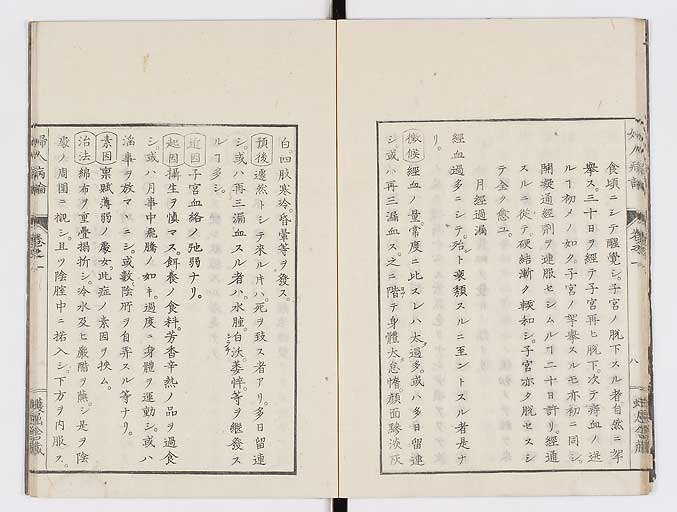 食頃ニシテ醒覺シ。子宮ノ脱下スル者自然ニ牽
擧ス。三十日ヲ經テ子宮再ヒ脱下。次テ瘀血ノ迸
ルヿ初メノ如ク。子宮ノ牽擧スルモ亦初ニ同シ。
開凝通經劑ヲ連服セシムルヿ二十日許リ。經通
スルニ從テ硬結漸ク輭和シ。子宮亦タ脱セスシ
テ全ク愈ユ。
月經過漏
經血過多ニシテ。殆ト衰頽スルニ至ントスル者是ナ
リ。
徴候 經血ノ量。常度ニ比スレハ太過多。或ハ多日留連
シ。或ハ再三漏血ス。之ニ階テ身體太怠惰。顔面黲淡灰
白。四肢寒冷。昏暈等ヲ發ス。
預後 遽然トシテ來ル片ハ。死ヲ致ス者アリ。多日留連
シ。或ハ再三漏血スル者ハ。水腫。白沃。萎悴。等ヲ繼發ス
ルヿ多シ。
近因 子宮血絡ノ弛弱ナリ。
起因 攝生ヲ慎マス。餌養ノ食料。芳香辛熱ノ品ヲ過食
シ。或ハ月事中飛騰ノ如キ。過度ニ身體ヲ運動シ。或ハ
滛事ヲ放マヽニシ。或數陰所ヲ自弄スル等ナリ。
素因 稟賦薄弱ノ處女此症ノ素因ヲ挾ム。
治法 綿布ヲ重疊摺折シ。冷水及ヒ嚴醋ヲ蘸シ。是ヲ陰
處ノ周圍ニ襯シ。且ツ陰腟中ニ搭入シ。下方ヲ内服ス。
婦人病論
卷之一